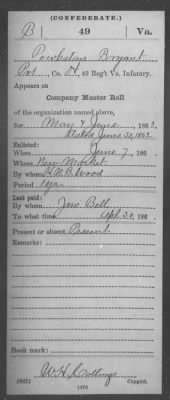 (CONFEDERATE.)
B 49 Va.
Powhatan Bryant
Pvt, Co. H, 49 Reg't Va. Infantry.
Appears on
Company Muster Roll
of the organization named above,
for May & June, 1862.
dated June 30, 1862
Enlisted:
When June 7, 186
Where New Market
By whom Wood
Period 1 yr
Last paid:
By whom Jno Bell
To what time Apl 30, 186
Present or absent Present
Remarks:
Book mark:
W H
(642) Copyist.